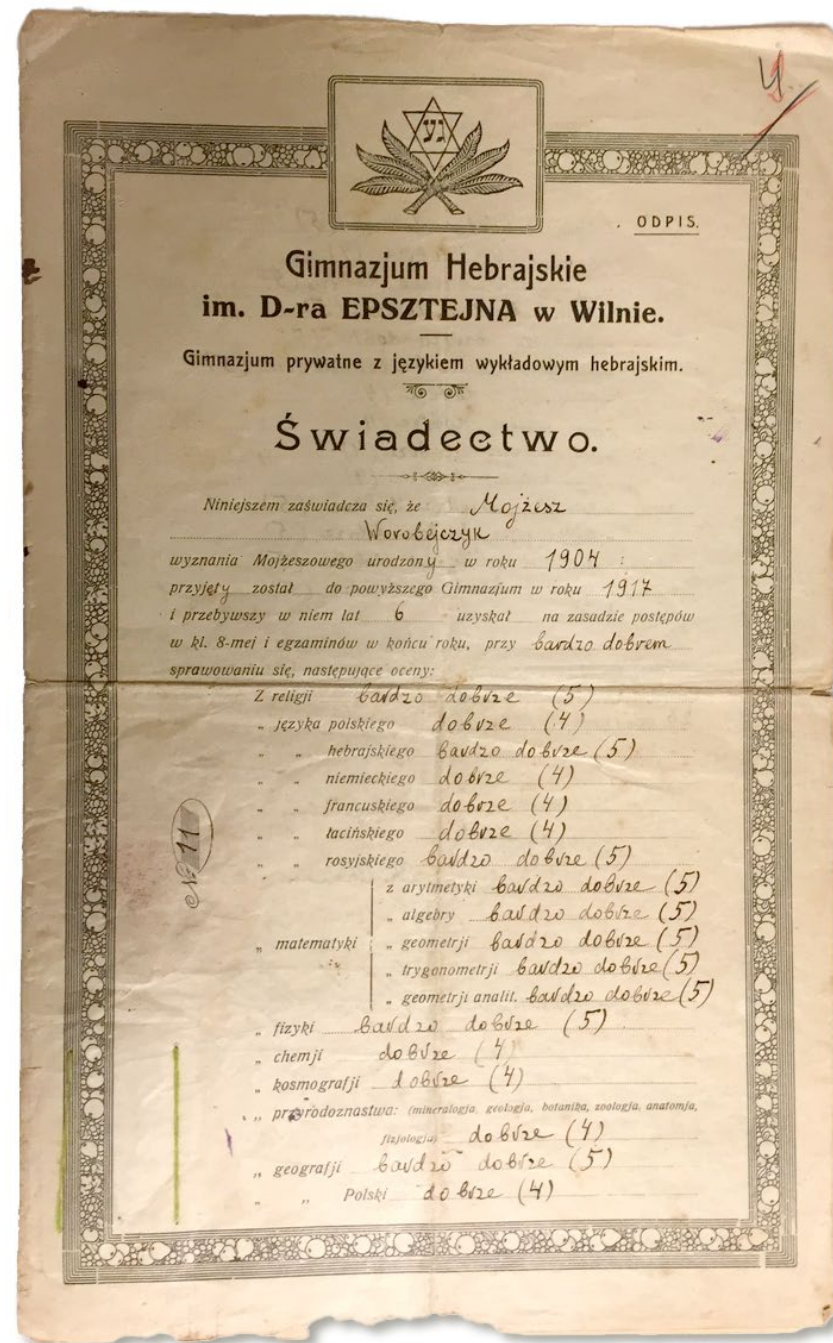 4.
נע
ODPIS.
Gimnazjum Hebrajskie
im. D-ra EPSZTEJNA w Wilnie.
Gimnazjum prywatne z językiem wykładowym hebrajskim.
Świadectwo.
Niniejszem zaświadcza się, że Mojżesz
Worobejczyk
wyznania Mojżeszowego urodzony w roku 1904 :
przyjęty został do powyższego Gimnazjum w roku 1917
i przebywszy w niem lat 6 uzyskał na zasadzie postępów
w kl. 8-mej i egzaminów w końcu roku, przy bardzo dobrem
sprawowaniu się, następujące oceny:
Z religji bardzo dobrze (5)
„ języka polskiego dobrze (4)
„ „ hebrajskiego bardzo dobrze (5)
„ „ niemieckiego dobrze (4)
„ „ francuskiego dobrze (4)
„ „ łacińskiego dobrze (4)
„ „ rosyjskiego bardzo dobrze (5)
№ 11
z arytmetyki bardzo dobrze (5)
„ algebry bardzo dobrze (5)
„ matematyki „ geometrji bardzo dobrze (5)
„ trygonometrji bardzo dobrze (5)
„ geometrji analit. bardzo dobrze (5)
„ fizyki bardzo dobrze (5)
„ chemji dobrze (4)
„ kosmografji dobrze (4)
„ „ przyrodoznastwa: (mineralogja, geologja, botanika, zoologja, anatomja,
fizjologja) dobrze (4)
„ geografji bardzo dobrze (5)
„ „ Polski dobrze (4)